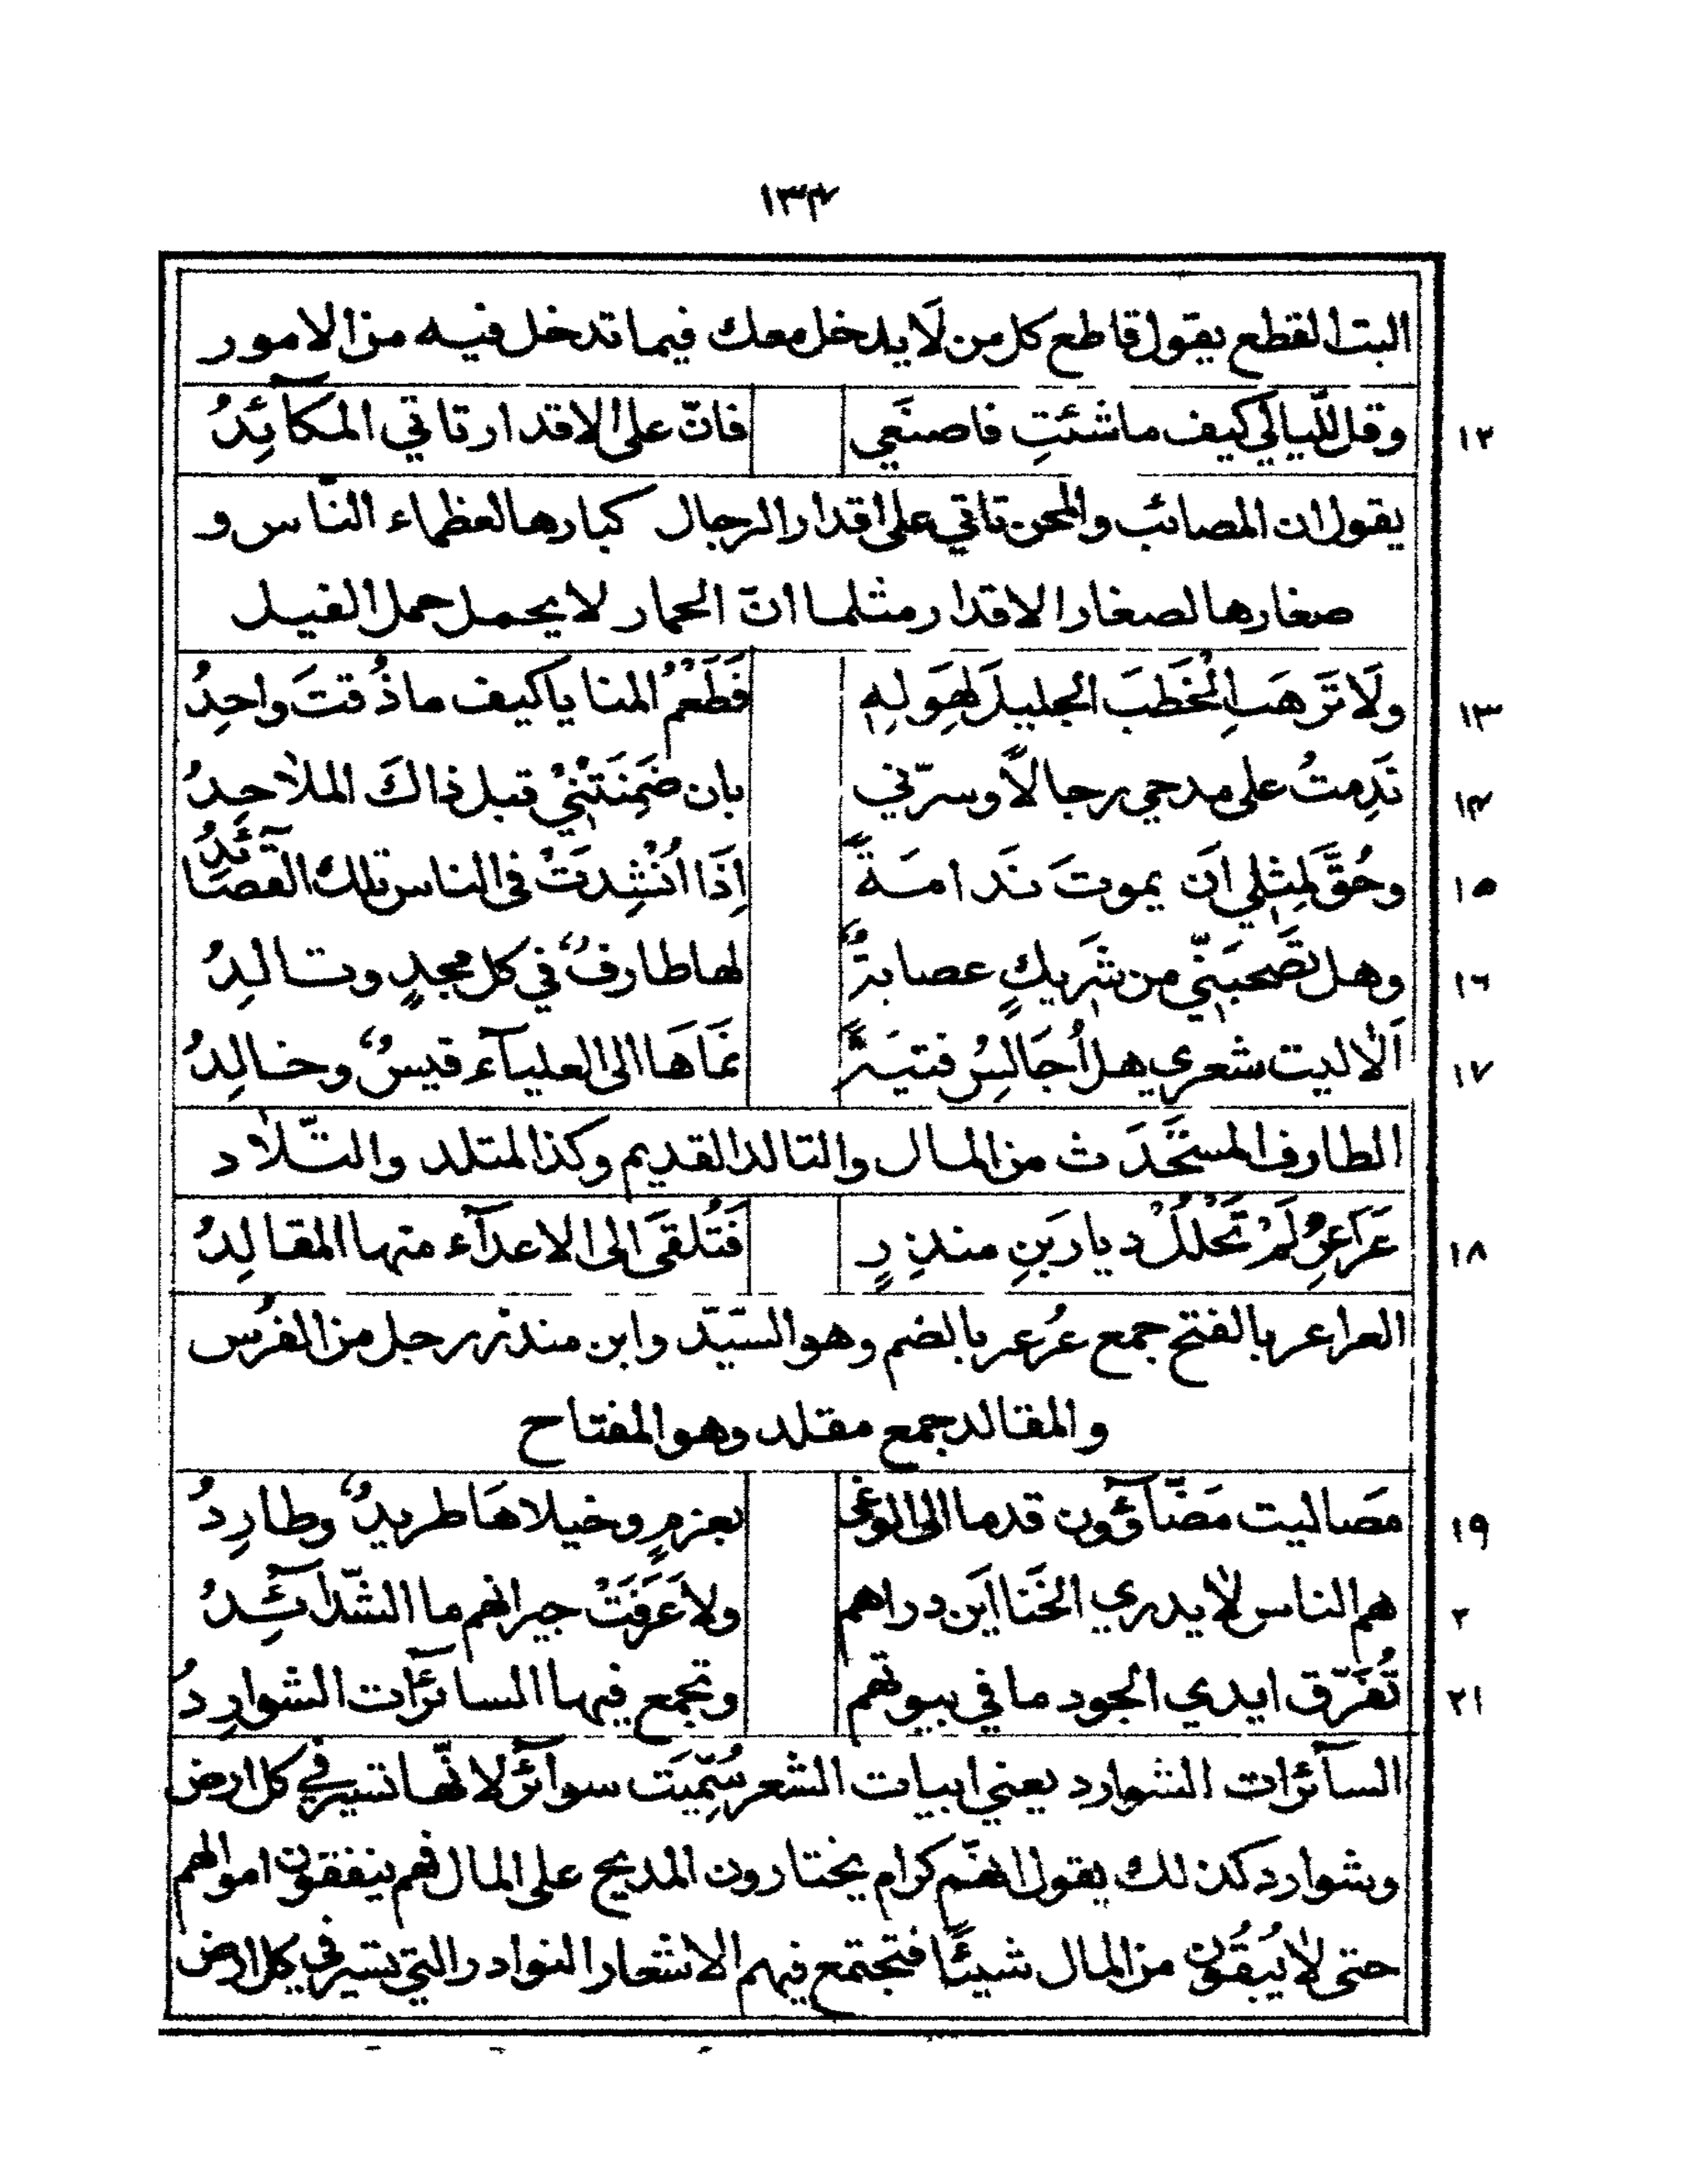 ١٣٤
البت القطع يقول قاطع كل من لَا يدخل معك فيما تدخل فيه من الامور
١٢ وقل للّيالي كيف ماشئتِ فاصنَعَي فانّ على الاقدار تاتي المكآئِدُ
يقول ان المصائب والمحن تاتي على اقدار الرجال كبارها لعظماء النّاس و
صغارها لصغار الاقدار مثلما انّ الحمار لا يحمل حمل الفيل
١٣ ولَا تَرهَبِ الْخَطبَ الجليلَ لِهَولِهِ فَطَعْمُ المنايا كيف ماذُقتَ واحِدُ
١٤ نَدِمتُ على مدحي رجالاً وسرّني بان ضَمِنَتْنِيْ قبل ذاكَ الملاحِدُ
١٥ وحُقَّ لِمِثلِي اَن يموتَ نَدامَةً اِذَا اُنْشِدَتْ فى الناس تلك القصَآئدُ
١٦ وهل تَصحبَنِّي من شَرِيكٍ عصابةٌ لها طارفٌ في كل مجدٍ وتالِدُ
١٧ اَلَا ليت شعري هل اُجَالِسُ فتيَةً نمَاهَا الى العليآء قيسٌ وخالِدُ
الطارف المستَحْدَث من المال والتالد القديم وكذا المتلد والتّلَاد
١٨ عَرَاعِرُ لَمْ تَحْلُلْ ديار بَنِ منذرٍ فَتُلقَى الى الاعدآء منها المقالِدُ
العراعر بالفتح جمع عُرعر بالضم وهو السّيّد وابن منذر رجل من الفُرس
والمقالد جمع مقلد وهو المفتاح
١٩ مَصاليت مَضّآؤون قدما الى الوغى بعزمٍ وخيلاهَا طريدٌ وطارِدُ
٢ هم الناس لَا يدري الخَنا اَين دراهم ولا عَرَفَتْ جيرانهم ما الشّدآئِدُ
٢١ تُفَرّق ايدي الجود ما في بيوتهم وتجمع فيها السآئرات الشوارِدُ
السآئرات الشوارد يعني ابيات الشعر سُمّيَت سوآئر لانّها تسير في كل ارض
وشوارد كذلك يقول انهّم كرام يختارون المديح على المال فهم ينفقون اموالهم
حتى لَا يُبقُون من المال شيئًا فتجتمع فيهم الاشعار النوادر التي تسير في كل ارض